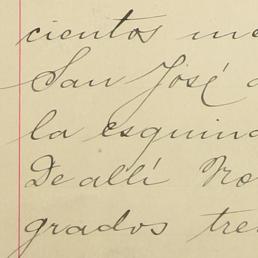 cientos me
San José d
la esquina
De allí No
grados tre